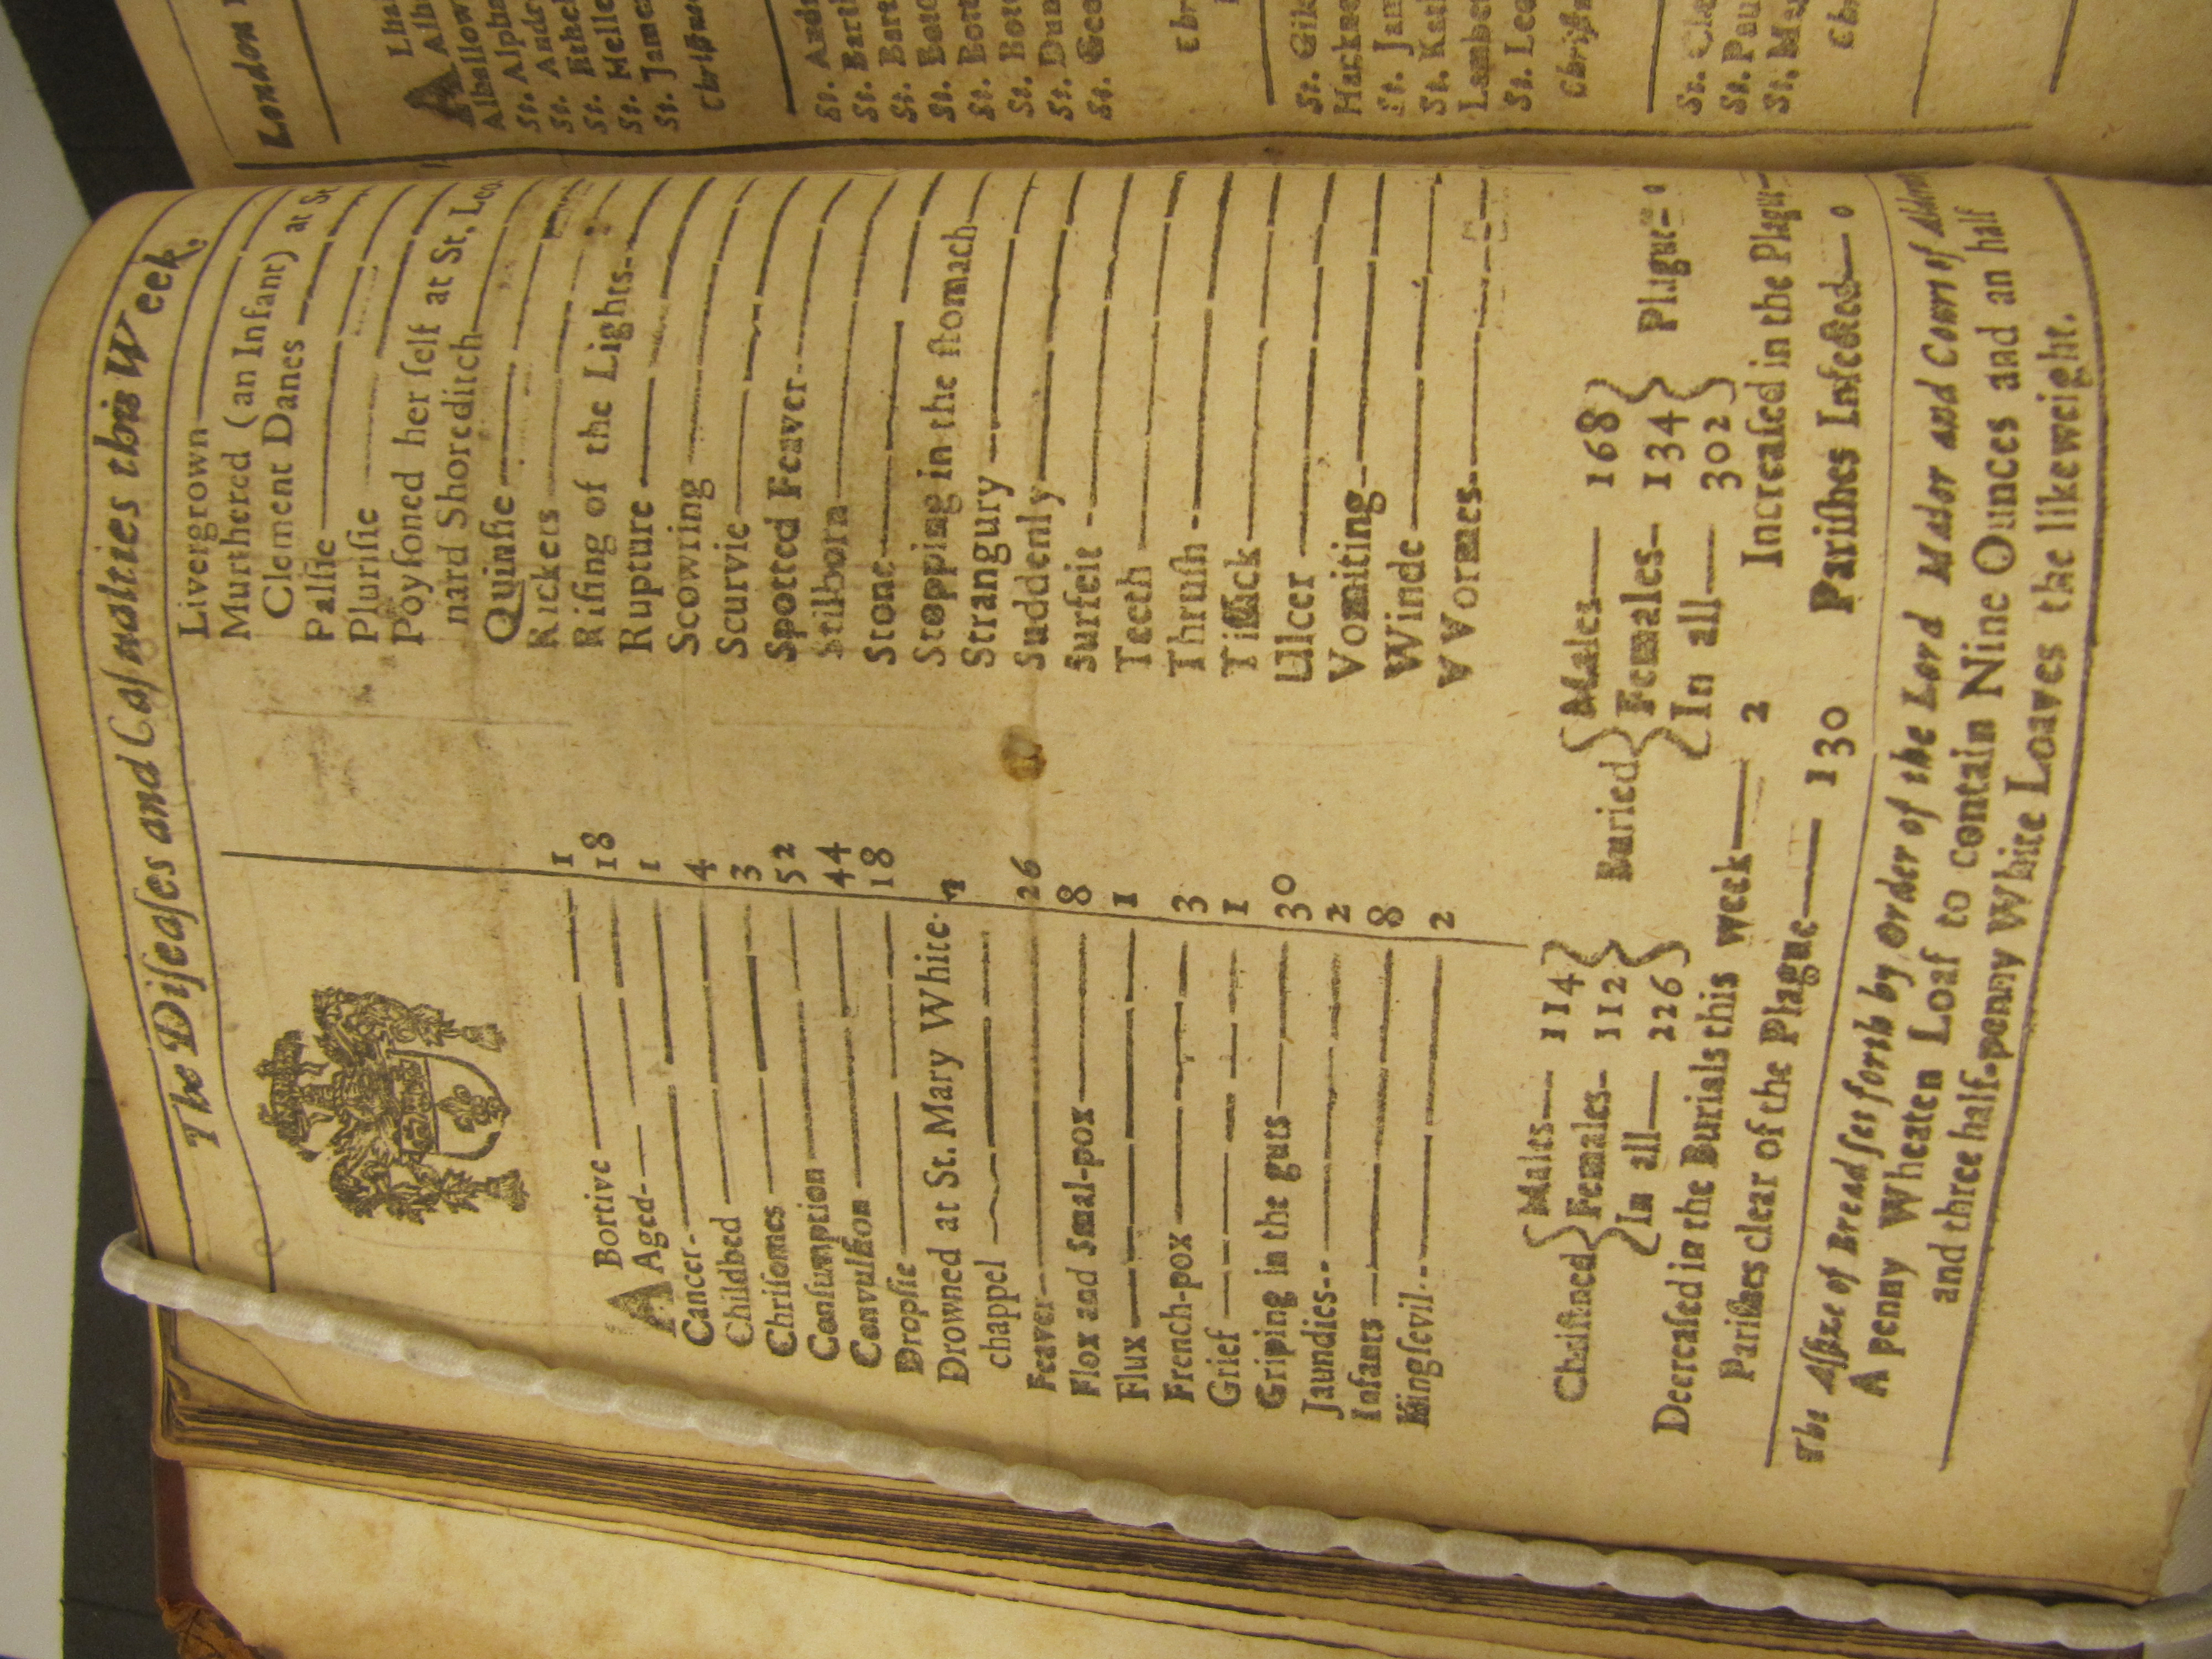 The Diſeaſes and Caſualties this Week.
ABortive — 1
Aged — 18
Cancer — 1
Childbed — 4
Chriſomes — 3
Conſumption — 52
Convulſion — 44
Dropſie — 18
Drowned at St. Mary White-
chappel
Feaver — 26
Flox and Smal-pox — 8
Flux — 1
French-pox — 3
Grief — 1
Griping in the guts — 30
Jaundies — 2
Infants — 8
Kingſevil — 2
Livergrown
Murthered (an Infant) at St
Clement Danes
Palſie
Pluriſie
Poyſoned her ſelf at St, Leo
nard Shoreditch
Quinſie
Rickets
Riſing of the Lights
Rupture
Scowring
Scurvie
Spotted Feaver
Stilborn
Stone
Stopping in the ſtomach
Strangury
Suddenly
Surfeit
Teeth
Thruſh
Tiſſick
Ulcer
Vomiting
Winde
VVormes
Chriſtned { Males — 114 Females — 112 In all — 226 }
Buried { Males — 168 Females — 134 In all — 302 } Plague — 0
Decreaſed in the Burials this week — 2
Increaſed in the Plague
Pariſhes clear of the Plague — 130 Pariſhes Infected — 0
The Aſſize of Bread ſet forth by Order of the Lord Maior and Court of
A penny Wheaten Loaf to contain Nine Ounces and an half
and three half-penny White Loaves the likeweight.
London
St. Alpha
St. Andre
St. Ethel
St. Helle
St. Jame
St. Andr
St. Barth
St. Bart
St. Dun
St. Geo
St. Gil
Hackne
St. Jam
St. Kath
Lambe
St. Leo
St. Cle
St. Pau
St. Ma